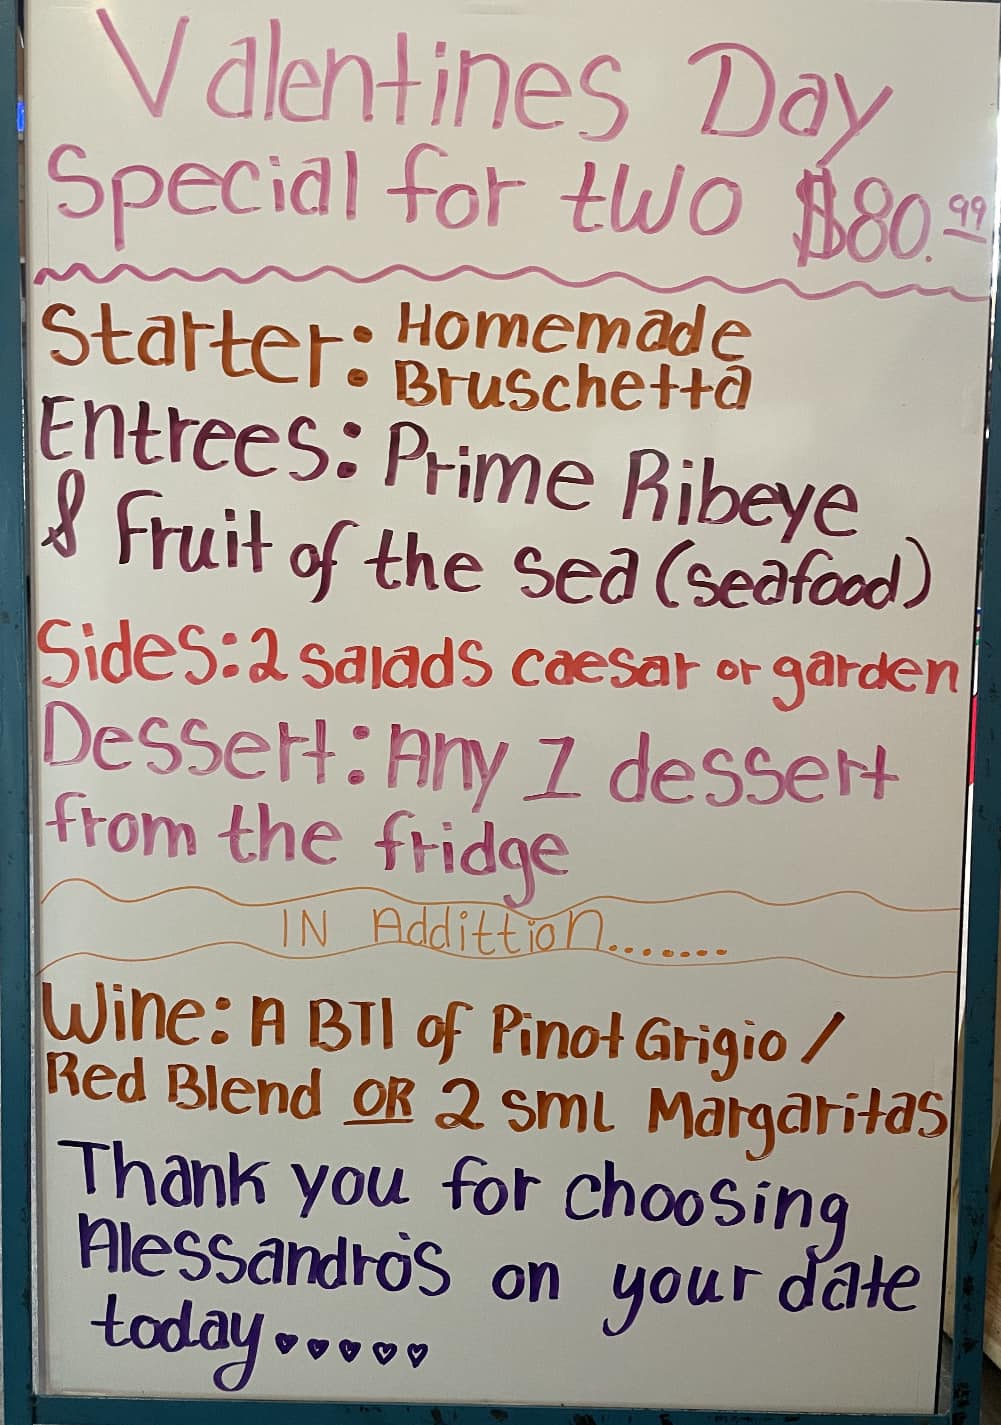 Valentines Day
Special for two $80.99
Starter: Homemade
Bruschetta
Entrees: Prime Ribeye
& Fruit of the Sea (seafood)
Sides: 2 salads caesar or garden
Dessert: Any 1 dessert
from the fridge
IN Addittion.......
Wine: A BTl of Pinot Grigio /
Red Blend OR 2 sml Margaritas
Thank you for choosing
Alessandro's on your date
today.♥♥♥♥♥